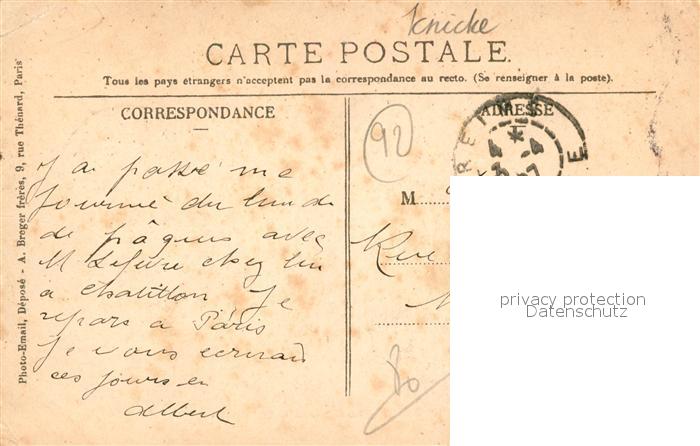 Knicke
CARTE POSTALE.
Tous les pays étrangers n'acceptent pas la correspondance au recto. (Se renseigner à la poste).
CORRESPONDANCE
ADRESSE
92
J ai passé une
journée du lundi
de pâques avec
M Lefevre chez lui
a chatillon Je
repars a Paris
Je vous
ces jours en
Albert
M
Rue
80
privacy protection
Datenschutz
Photo-Email, Déposé - A. Breger frères, 9, rue Thénard, Paris